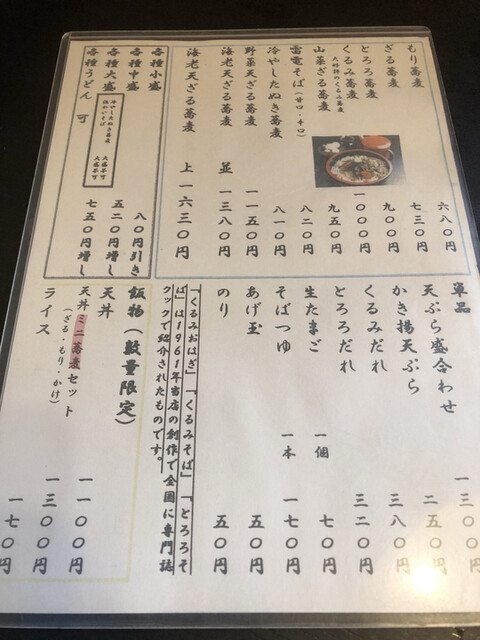 もり蕎麦 六八〇円
ざる蕎麦 七三〇円
とろろ蕎麦 九〇〇円
くるみ蕎麦 一〇〇〇円
大好評のくるみ蕎麦
山菜ざる蕎麦 九五〇円
雷電そば(甘口・辛口) 八二〇円
冷やしたぬき蕎麦 八一〇円
野菜天ざる蕎麦 一一五〇円
海老天ざる蕎麦 並 一三八〇円
海老天ざる蕎麦 上 一六三〇円
各種小盛 八〇円引き
各種中盛 五二〇円増し
各種大盛 七五〇円増し
冷やしたぬき蕎麦 大盛不可
温かいそば 大盛不可
各種うどん 可
単品
天ぷら盛合わせ 一三〇〇円
かき揚天ぷら 二五〇円
くるみだれ 三八〇円
とろろだれ 三二〇円
生たまご 一個 七〇円
そばつゆ 一本 一七〇円
あげ玉 五〇円
のり 五〇円
「くるみおはぎ」「くるみそば」「とろろそ
ば」は1961年当店の創作で全国に専門誌
クックで紹介されたものです。
飯物(数量限定)
天丼 一一〇〇円
天丼ミニ蕎麦セット 一三〇〇円
(ざる・もり・かけ)
ライス 一七〇円